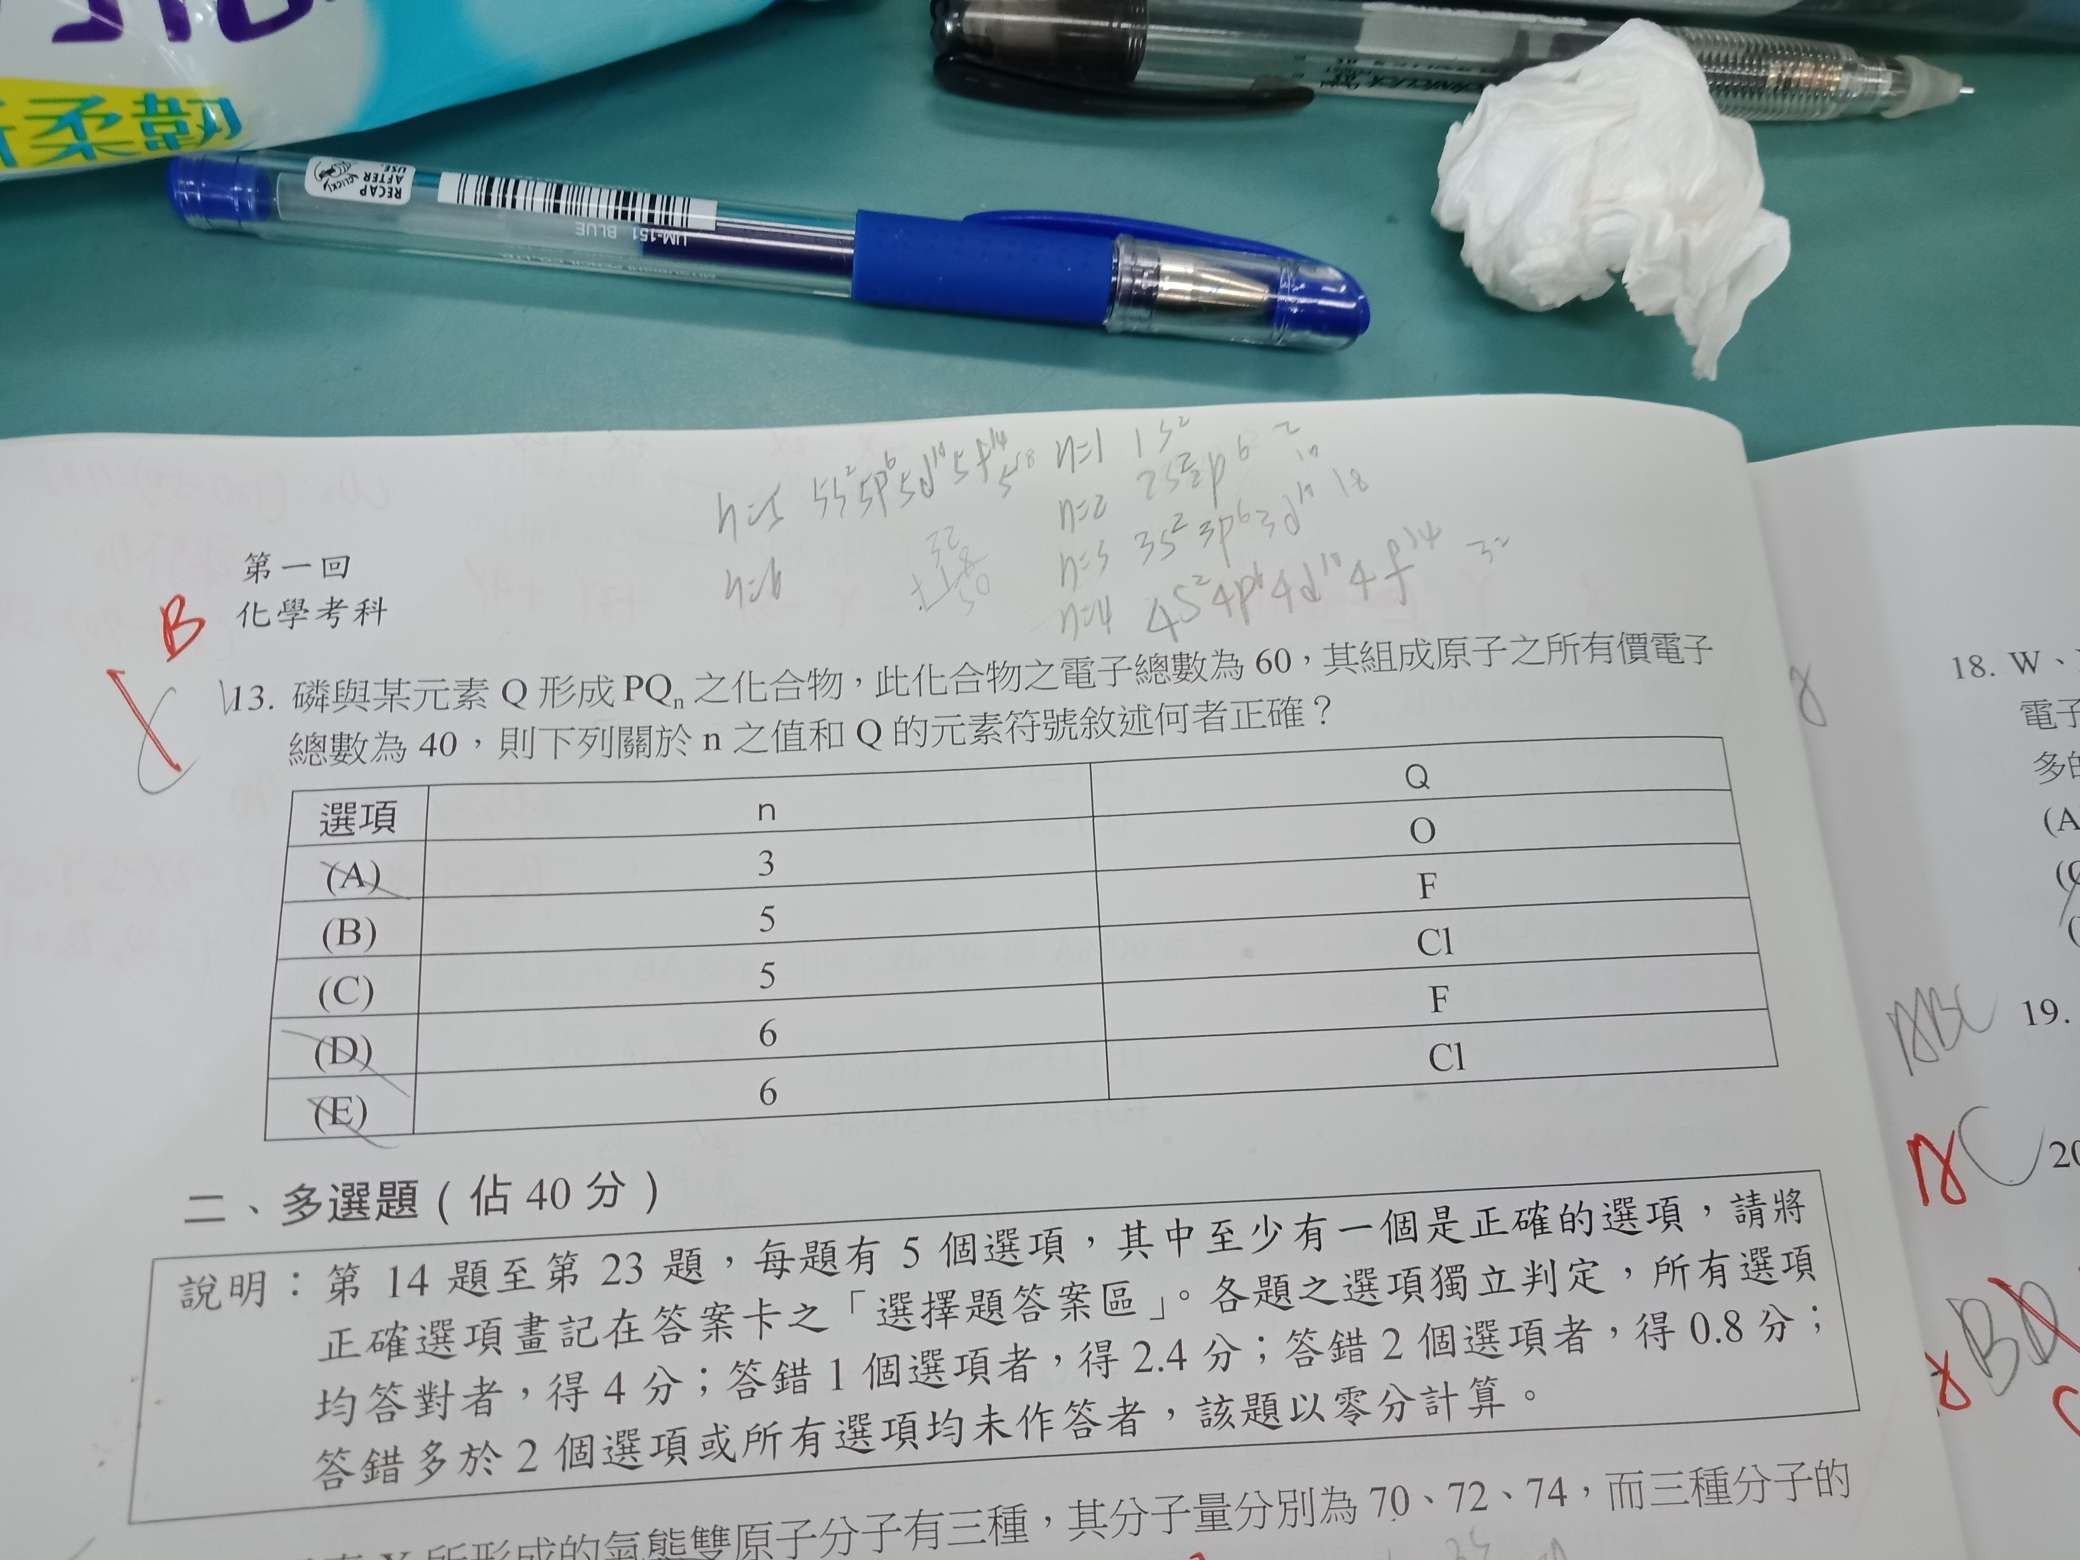 柔韌
RECAP
AFTER
USE.
CLICK!
UM-151 BLUE
n=5 5s²5p⁶5d¹⁰5f¹⁴
n=1 1s² 2
n=2 2s²2p⁶
n=3 3s²3p⁶3d¹⁰ 18
n=4 4s²4p⁶4d¹⁰4f¹⁴ 32
n=6
第一回
化學考科
B
13. 磷與某元素 Q 形成 PQₙ 之化合物,此化合物之電子總數為 60,其組成原子之所有價電子
總數為 40,則下列關於 n 之值和 Q 的元素符號敘述何者正確?
選項 n Q
(A) 3 O
(B) 5 F
(C) 5 Cl
(D) 6 F
(E) 6 Cl
二、多選題(佔 40 分)
說明:第 14 題至第 23 題,每題有 5 個選項,其中至少有一個是正確的選項,請將
正確選項畫記在答案卡之「選擇題答案區」。各題之選項獨立判定,所有選項
均答對者,得 4 分;答錯 1 個選項者,得 2.4 分;答錯 2 個選項者,得 0.8 分;
答錯多於 2 個選項或所有選項均未作答者,該題以零分計算。
所形成的氣態雙原子分子有三種,其分子量分別為 70、72、74,而三種分子的
18. W、
電子
多的
(A
ABC 19.
AC 20